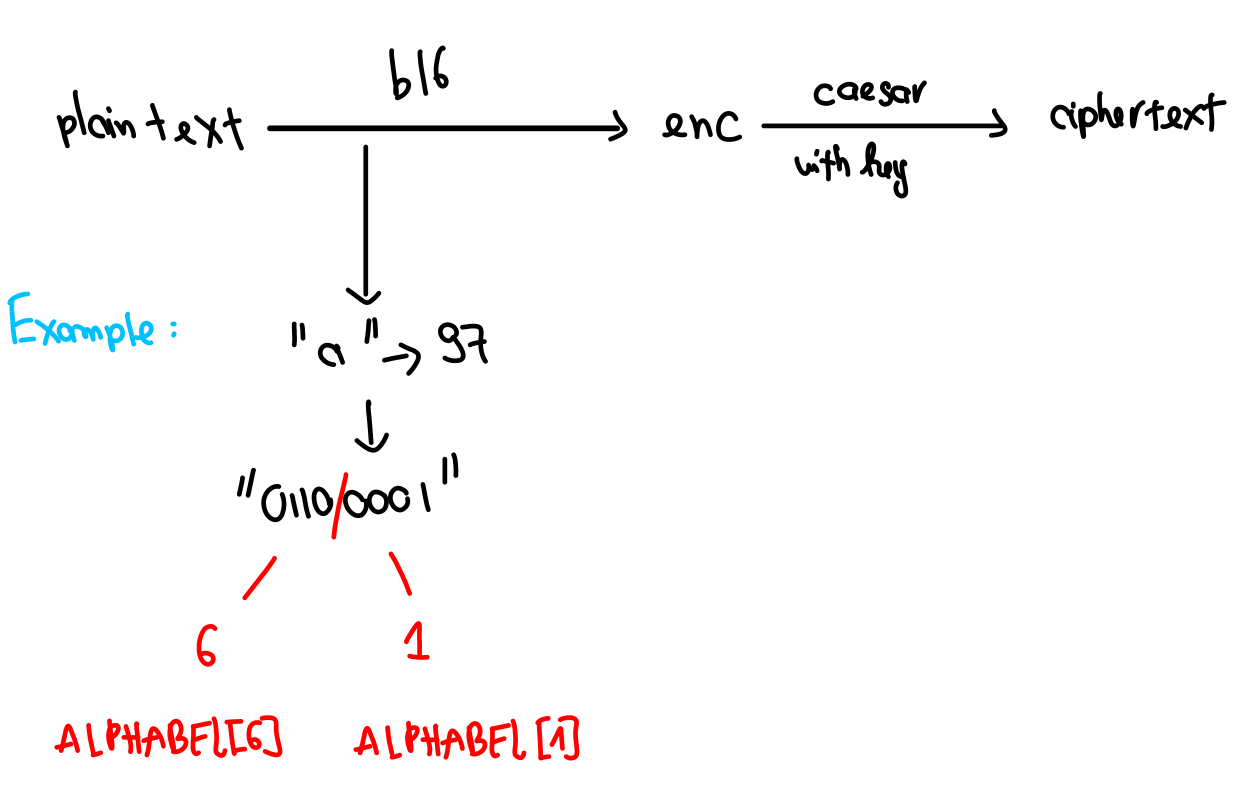 plaintext b16 enc caesar with key ciphertext
Example: "a" → 97
"0110/0001"
6 1
ALPHABEL[6] ALPHABEL[1]